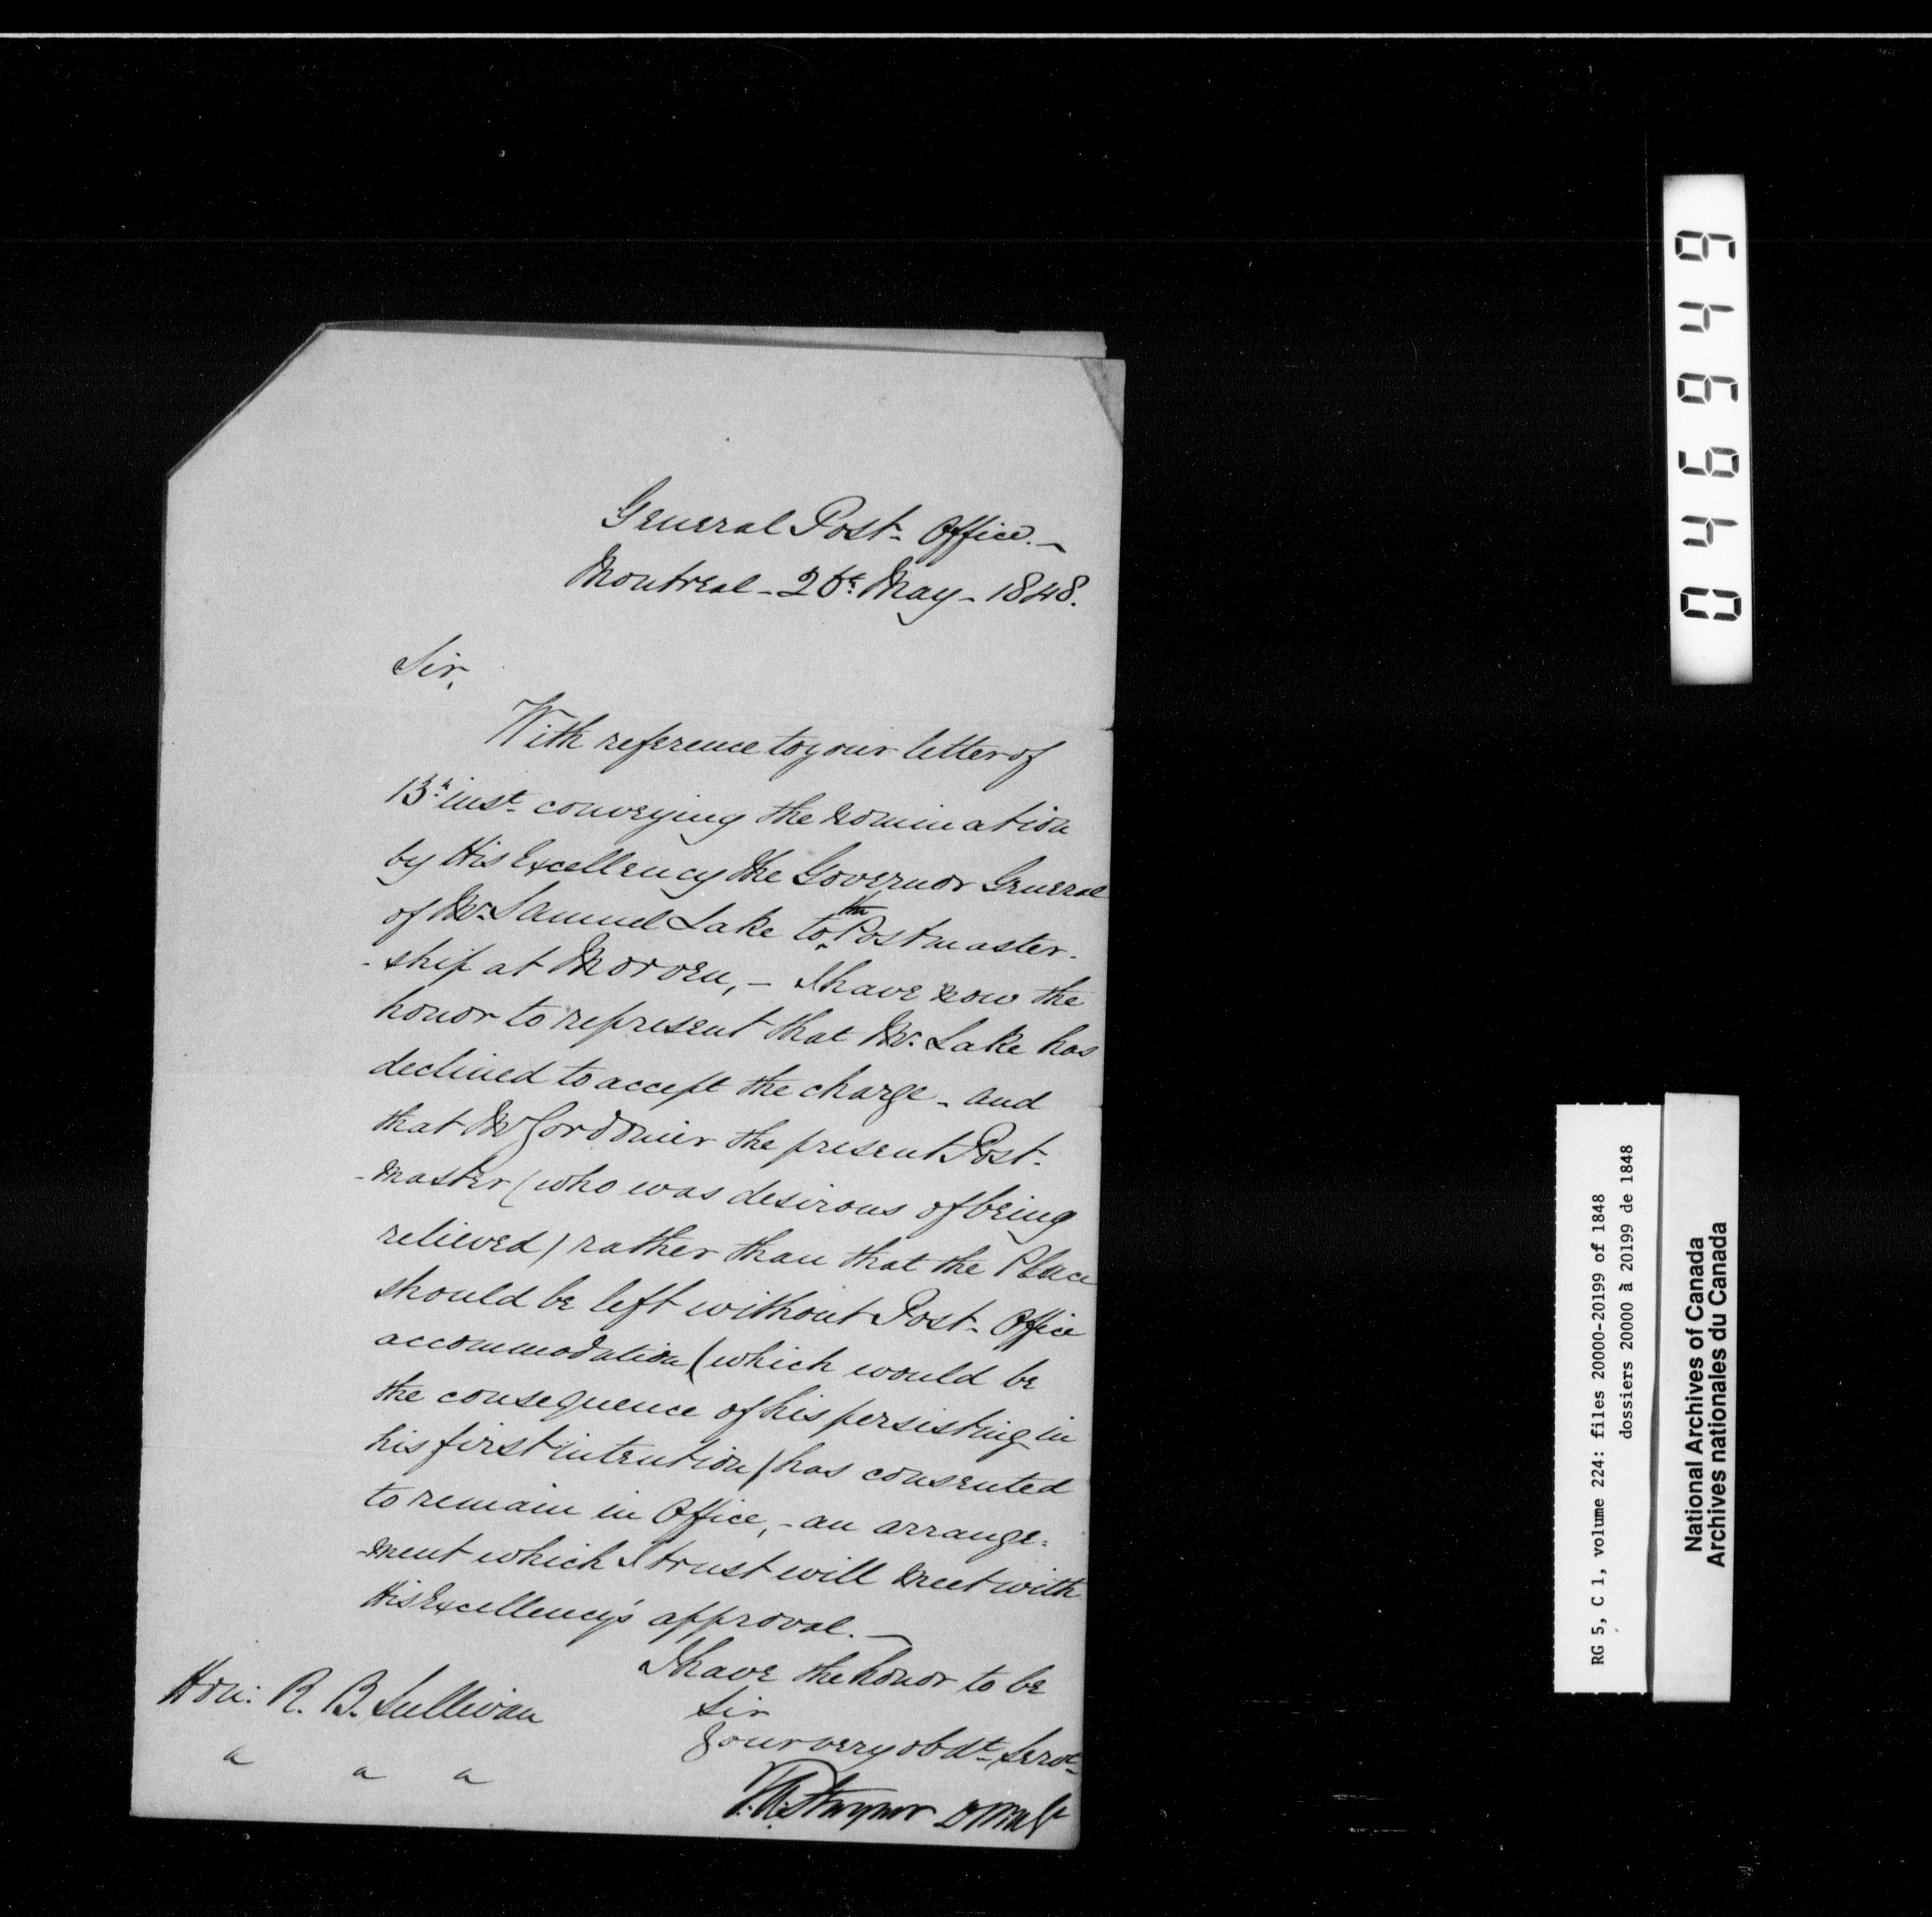 General Post- Office.-
Montreal - 26t. May - 1848.
Sir,
With reference to your letter of
13t. inst. conveying the nomination
by His Excellency the Governor General
of Mr. Samuel Lake to the Postmaster-
-ship at Morven, - I have now the
honor to represent that Mr. Lake has
declined to accept the charge - and
that Mr Gordonier the present Post-
-master (who was desirous of being
relieved) rather than that the Place
should be left without Post- Office
accommodation (which would be
the consequence of his persisting in
his first intention) has consented
to remain in Office, - an arrange-
-ment which I trust will meet with
His Excellency's approval. -
I have the honor to be
Sir
Your very obdt. Servt.
T.A. Stayner DPMGl
Hon: R. B. Sullivan
a a a
046949
RG 5, C 1, volume 224: files 20000-20199 of 1848
dossiers 20000 à 20199 de 1848
National Archives of Canada
Archives nationales du Canada